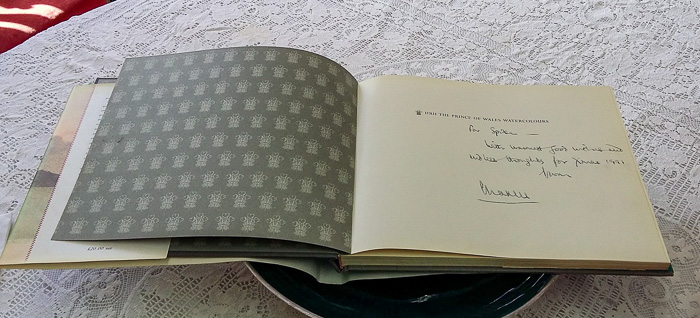 HRH THE PRINCE OF WALES WATERCOLOURS
for Spike —
With warmest good wishes and
wishes thoughts for Xmas 1991
from
Charles
£20.00 net